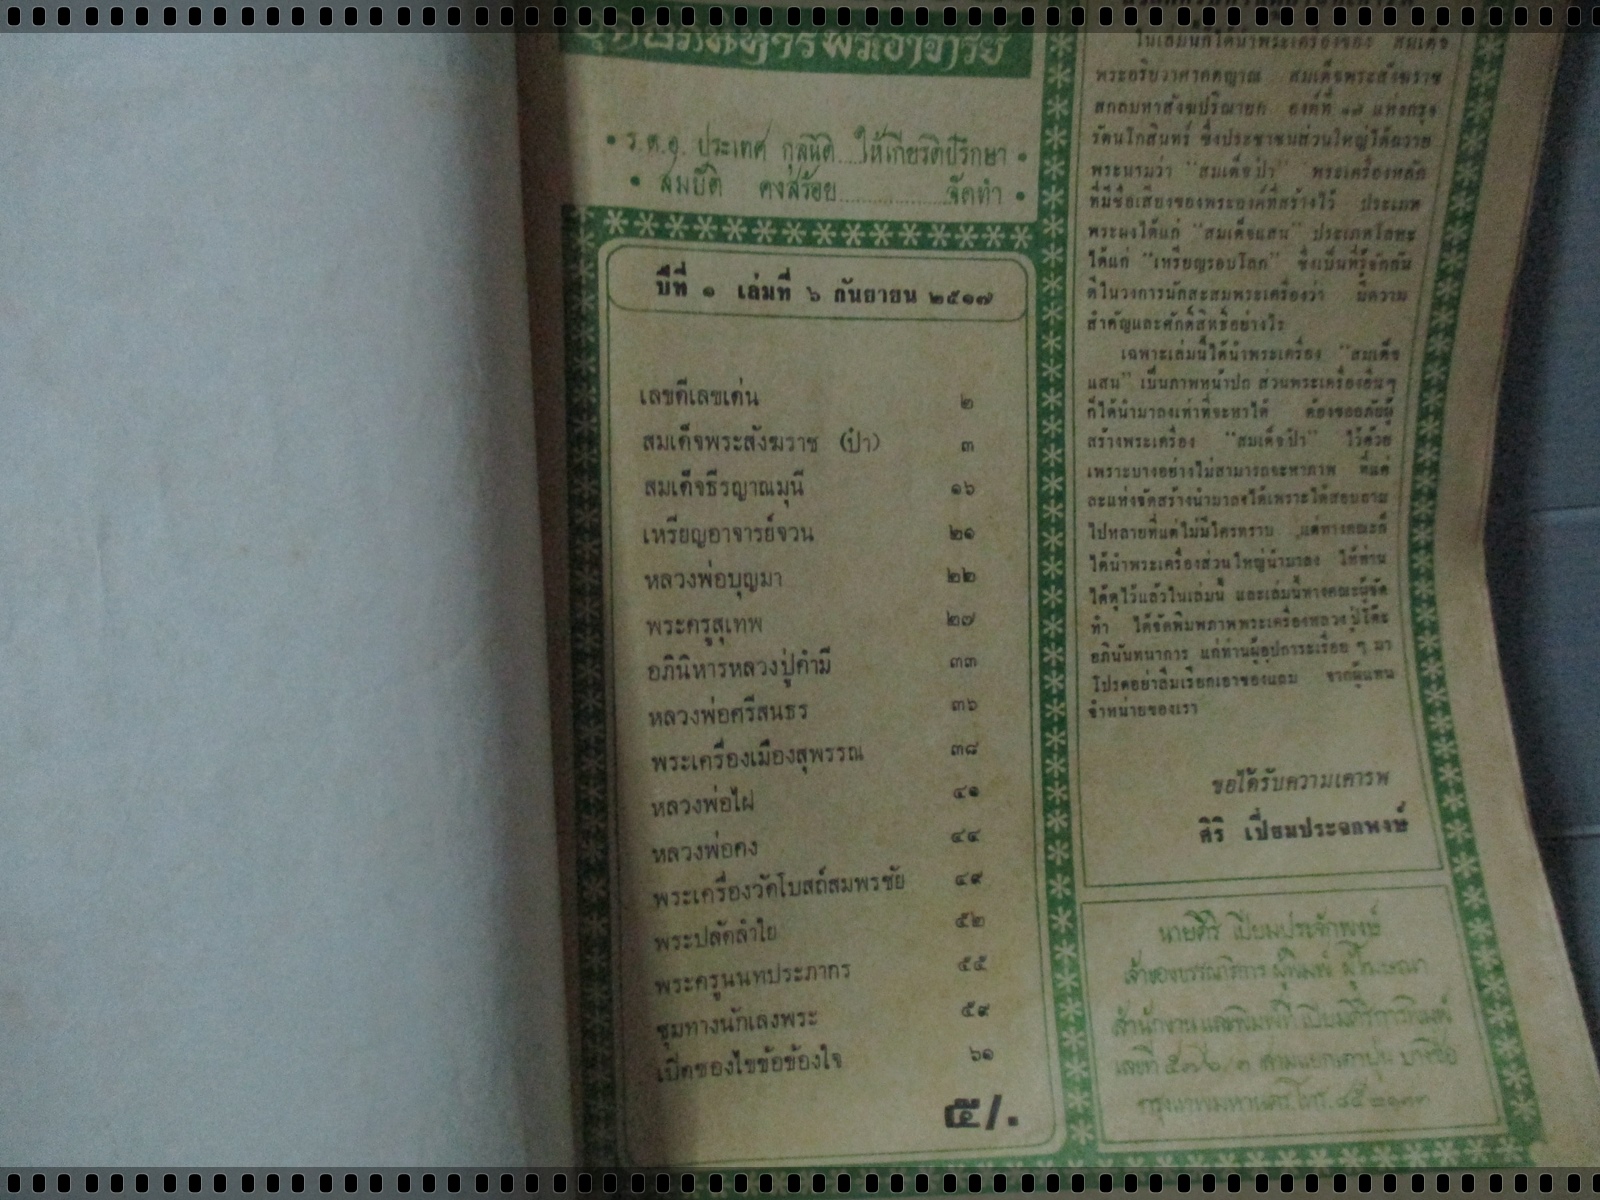 อภินิหารพระอาจารย์
• ร.ต.อ. ประเทศ กุลนิติ...ให้เกียรติปรึกษา •
• สมบัติ คงสร้อย....................จัดทำ •
ปีที่ ๑ เล่มที่ ๖ กันยายน ๒๕๑๗
เลขดีเลขเด่น ๒
สมเด็จพระสังฆราช (ป๋า) ๓
สมเด็จธีรญาณมุนี ๑๖
เหรียญอาจารย์จวน ๒๑
หลวงพ่อบุญมา ๒๒
พระครูสุเทพ ๒๗
อภินิหารหลวงปู่คำมี ๓๓
หลวงพ่อศรีสนธร ๓๖
พระเครื่องเมืองสุพรรณ ๓๘
หลวงพ่อไผ่ ๔๑
หลวงพ่อคง ๔๔
พระเครื่องวัดโบสถ์สมพรชัย ๔๙
พระปลัดลำใย ๕๒
พระครูนนทประภากร ๕๕
ชุมทางนักเลงพระ ๕๙
เปิดซองไขข้อข้องใจ ๖๑
๕/.
ในเล่มนี้ได้นำพระเครื่องของ สมเด็จ
พระอริยวงศาคตญาณ สมเด็จพระสังฆราช
สกลมหาสังฆปริณายก องค์ที่ ๑๗ แห่งกรุง
รัตนโกสินทร์ ซึ่งประชาชนส่วนใหญ่ได้ถวาย
พระนามว่า "สมเด็จป๋า" พระเครื่องหลัก
ที่มีชื่อเสียงของพระองค์ที่สร้างไว้ ประเภท
พระผงได้แก่ "สมเด็จแสน" ประเภทโลหะ
ได้แก่ "เหรียญรอบโลก" ซึ่งเป็นที่รู้จักกัน
ดีในวงการนักสะสมพระเครื่องว่า มีความ
สำคัญและศักดิ์สิทธิ์อย่างไร
เฉพาะเล่มนี้ได้นำพระเครื่อง "สมเด็จ
แสน" เป็นภาพหน้าปก ส่วนพระเครื่องอื่นๆ
ก็ได้นำมาลงเท่าที่จะหาได้ ต้องขออภัยผู้
สร้างพระเครื่อง "สมเด็จป๋า" ไว้ด้วย
เพราะบางอย่างไม่สามารถจะหาภาพ ที่แต่
ละแห่งจัดสร้างนำมาลงได้เพราะได้สอบถาม
ไปหลายที่แต่ไม่มีใครทราบ แต่ทางคณะก็
ได้นำพระเครื่องส่วนใหญ่นำมาลง ให้ท่าน
ได้ดูไว้แล้วในเล่มนี้ และเล่มนี้ทางคณะผู้จัด
ทำ ได้จัดพิมพ์ภาพพระเครื่องหลวงปู่โต๊ะ
อภินันทนาการ แก่ท่านผู้อุปการะเรื่อย ๆ มา
โปรดอย่าลืมเรียกเอาของแถม จากผู้แทน
จำหน่ายของเรา
ขอได้รับความเคารพ
ศิริ เปี่ยมประจักพงษ์
นายศิริ เปี่ยมประจักพงษ์
เจ้าของบรรณาธิการ ผู้พิมพ์ ผู้โฆษณา
สำนักงาน และพิมพ์ที่ เปี่ยมศิริการพิมพ์
เลขที่ ๕๗๖/๓ สามแยกเตาปูน บางซื่อ
กรุงเทพมหานคร โทร.